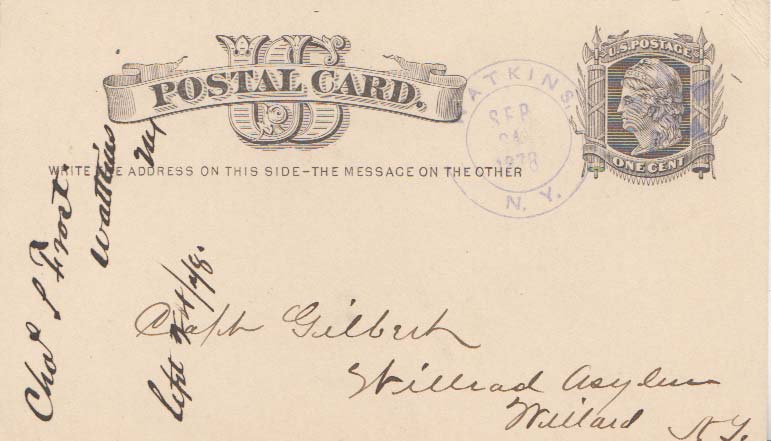 US
POSTAL CARD.
WRITE THE ADDRESS ON THIS SIDE–THE MESSAGE ON THE OTHER
WATKINS,
SEP
24
1878
N. Y.
U.S. POSTAGE
ONE CENT
Capt Gilbert
Willrad Asylum
Willard N.Y.
Chas S Frost.
Watkins
NY
Sept 24/78.